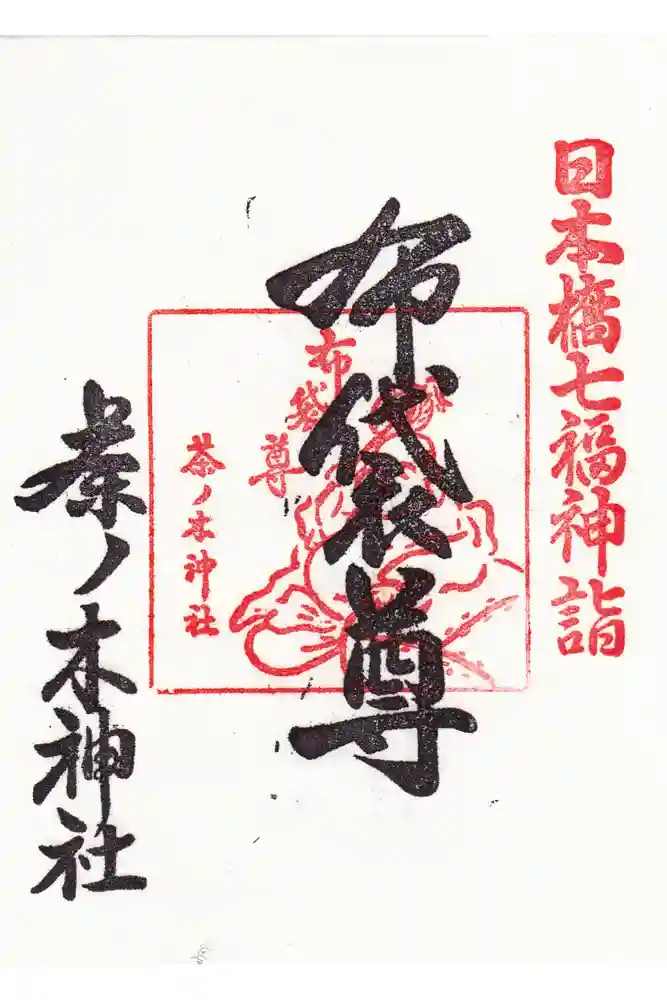 日本橋七福神詣
布袋尊
布袋尊
茶ノ木神社
茶ノ木神社